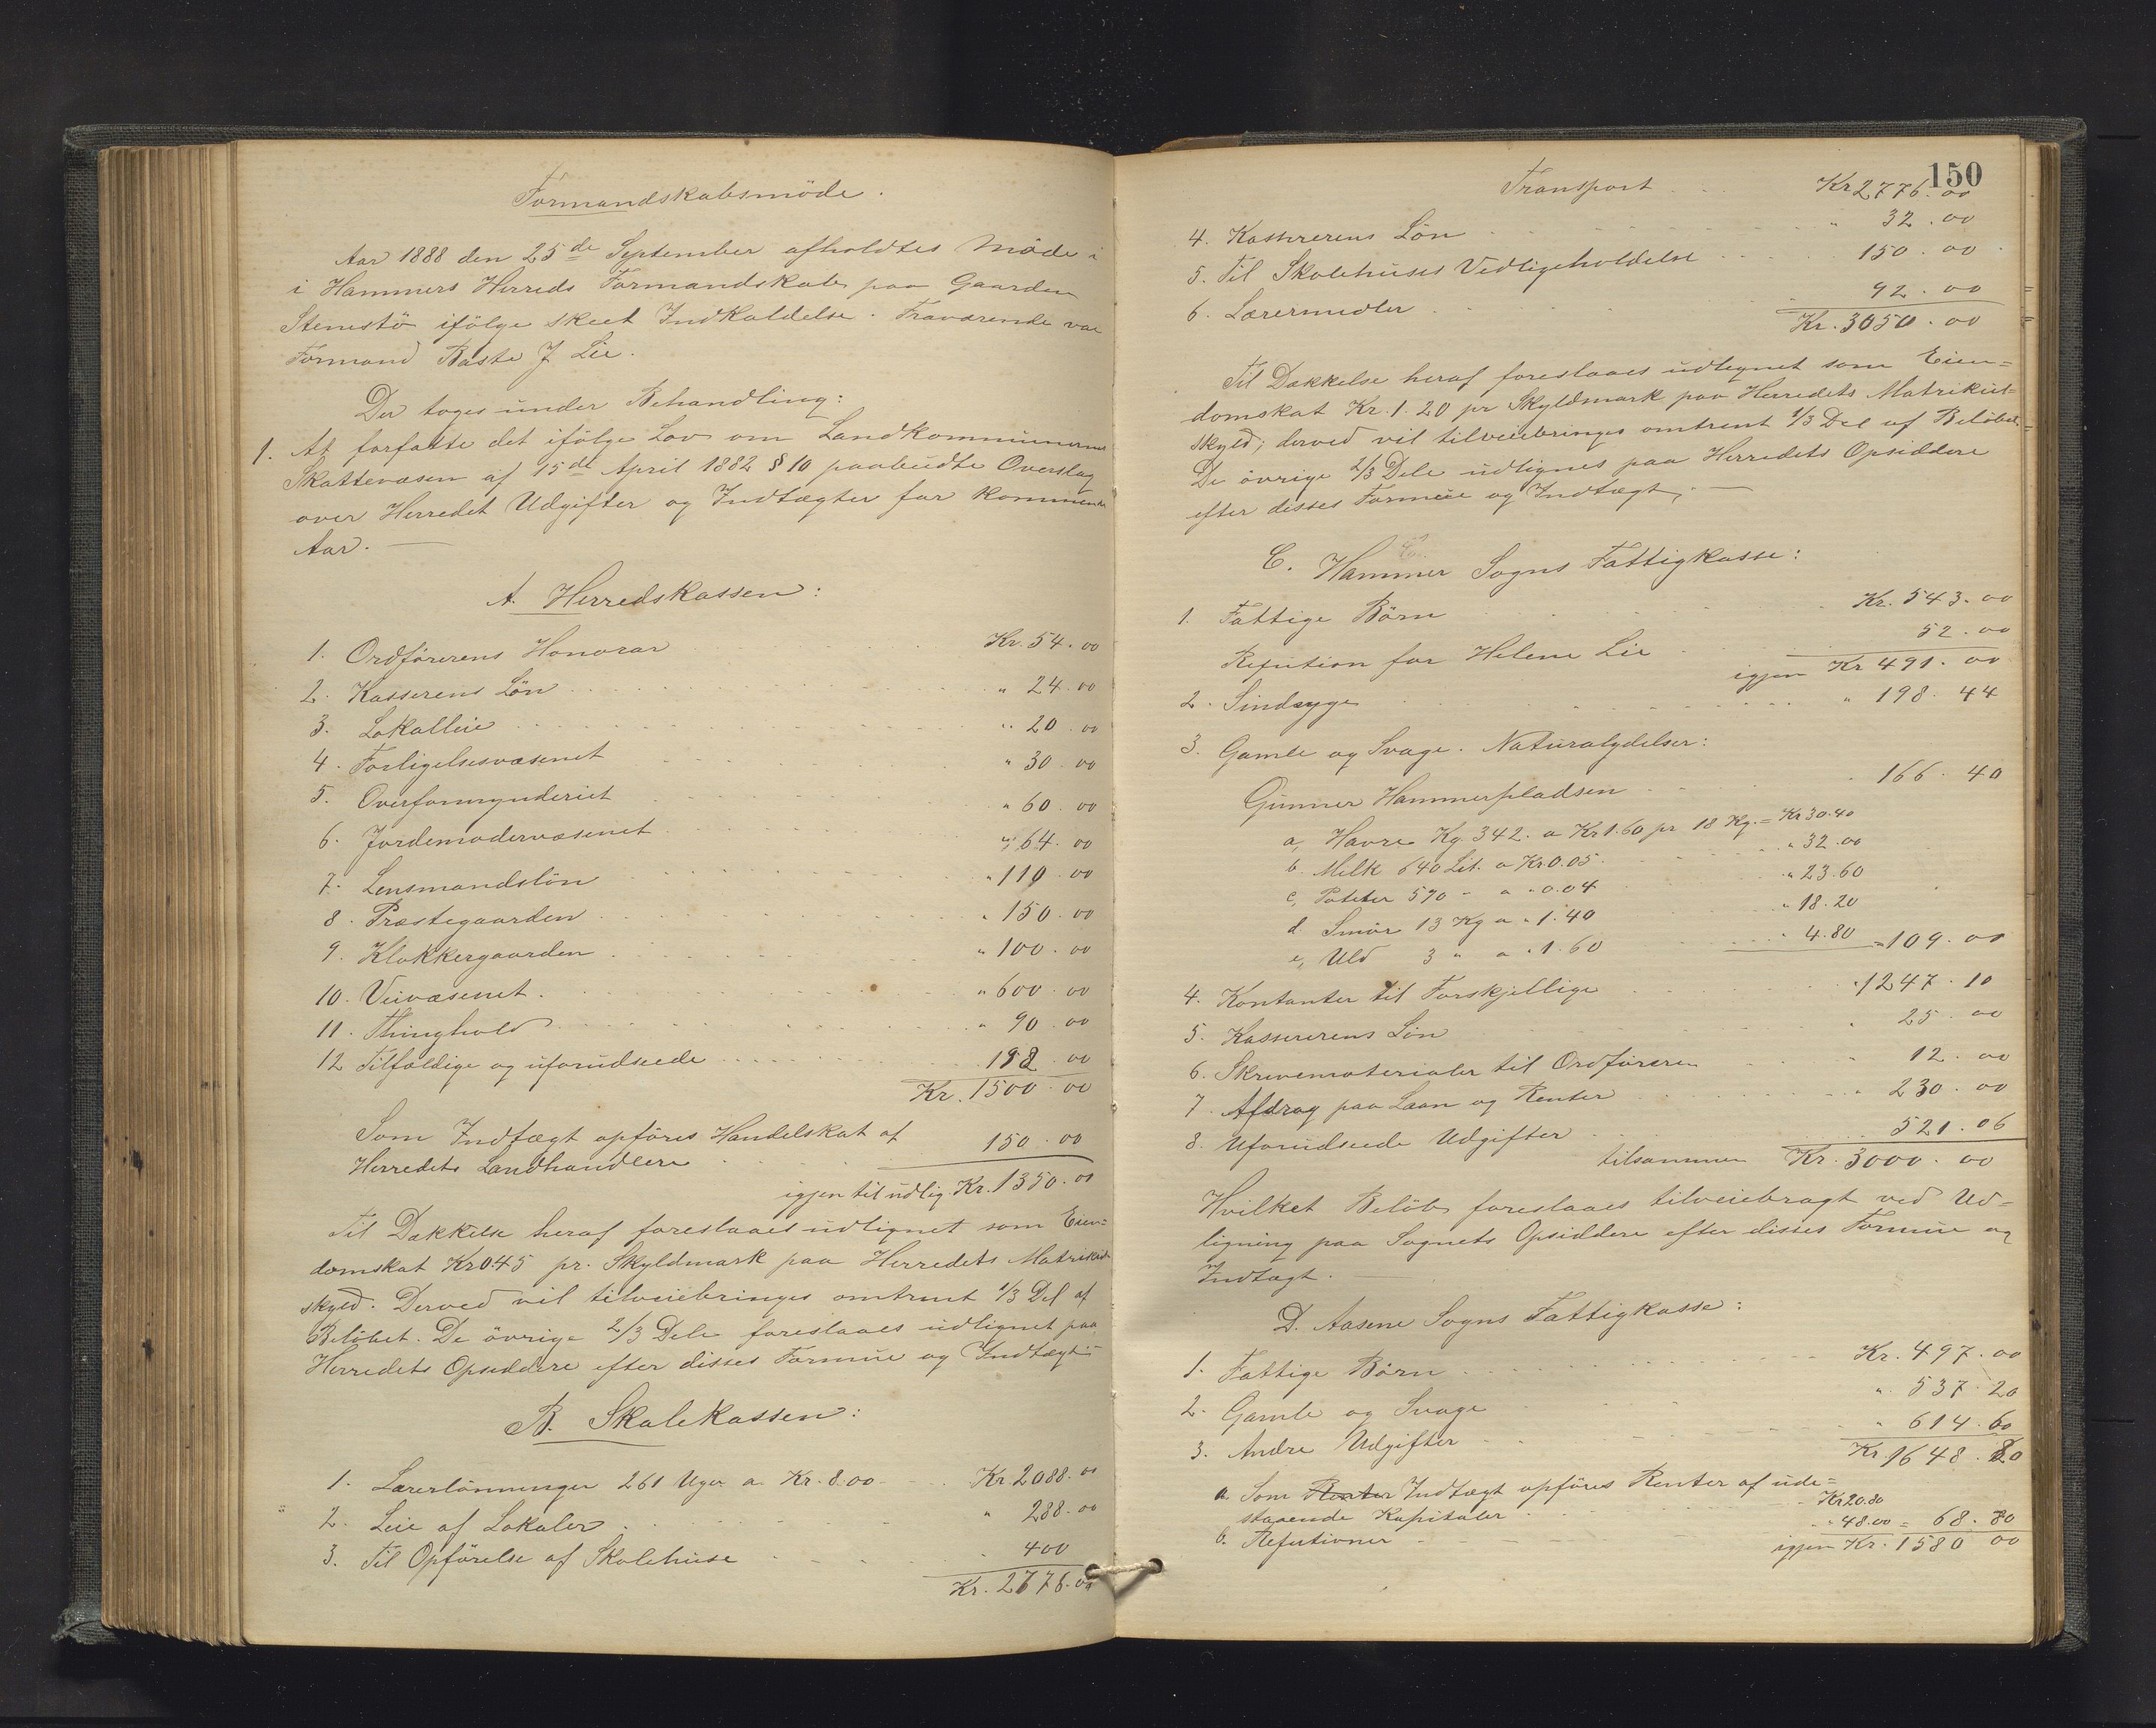 Formandskabsmöde.
Aar 1888 den 25de September afholdtes Möde i
i Hammers Herreds Formandskab paa Gaarden
Stenestö ifölge skeet Indkaldelse. Fraværende var
Formand Baste J. Lie.
Der toges under Behandling:
1. At forfatte det ifölge Lov om Landkommunernes
Skattevæsen af 15de April 1882 § 10 paabudte Overslag
over Herredet Udgifter og Indtægter for kommende
Aar. —
A. Herredskassen:
1. Ordförerens Honorar Kr. 54.00
2. Kasserens Lön " 24.00
3. Lokalleie " 20.00
4. Forligelsesvæsenet " 30.00
5. Overformynderiet " 60.00
6. Jordemodervæsenet " 64.00
7. Lensmandslön " 110.00
8. Præstegaarden " 150.00
9. Klokkergaarden " 100.00
10. Veivæsenet. " 600.00
11. Thinghold " 90.00
12 Tilfældige og uforudseede 198.00
Kr. 1500.00
Som Indtægt opföres Handelskat af
Herredets Landhandlere 150.00
igjen til udlig. Kr. 1350.00
Til Dækkelse heraf foreslaaes udlignet som Eien=
domskat Kr 0.45 pr. Skyldmark paa Herredets Matrikul
skyld. Derved vil tilveiebringes omtrent 1/3 Del af
Belöbet. De övrige 2/3 Dele foreslaaes udlignet paa
Herredets Opsiddere efter disses Formue og Indtægt. —
B. Skolekassen:
1. Lærerlönninger 261 Uger a Kr. 8.00 Kr. 2088.00
2. Leie af Lokaler " 288.00
3. Til Opförelse af Skolehuse 400
Kr. 2776.00
150
Transport Kr 2776.00
4. Kassererens Lön " 32.00
5. Til Skolehuses Vedligeholdelse 150.00
6. Lærermidler 92.00
Kr. 3050.00
Til Dækkelse heraf foreslaaes udlegnet som Eien=
domskat Kr. 1.20 pr Skyldmark paa Herredets Matrikul=
skyld; derved vil tilveiebringes omtrent 1/3 Del af Belöbet.
De övrige 2/3 Dele udlignes paa Herredets Opsiddere
efter disses Formue og Indtægt; —
C. Hammer Sogns Fattigkasse:
1. Fattige Börn Kr. 543.00
Refusion for Helene Lie 52.00
igjen Kr 491.00
2. Sindsyge " 198.44
3. Gamle og Svage. Naturalydelser:
Gunner Hammerpladsen 166.40
a, Havre Kg. 342. a Kr 1.60 pr 18 Kg. = Kr 30.40
b. Milk 640 Lit. a Kr. 0.05 " 32.00
c, Poteter 590 - a " 0.04 " 23.60
d Smör 13 Kg a " 1.40 " 18.20
e, Uld 3 " a " 1.60 " 4.80 = 109.00
4. Kontanter til Forskjellige " 1247.10
5. Kassererens Lön " 25.00
6. Skrivematerialer til Ordföreren " 12.00
7. Afdrag paa Laan og Renter " 230.00
8. Uforudseede Udgifter 521.06
tilsammen Kr. 3000.00
Hvilket Belöb foreslaaes tilveiebragt ved Ud=
ligning paa Sognets Opsiddere efter disses Formue og
Indtægt. —
D. Aasene Sogns Fattigkasse:
1. Fattige Börn Kr. 497.00
2. Gamle og Svage " 537.20
3. Andre Udgifter " 614.60
Kr 1648.80
a Som Renter Indtægt opföres Renter af ude=
staaende Kapitaler Kr 20.80
b. Refusioner " 48.00 = 68.80
igjen Kr. 1580 00